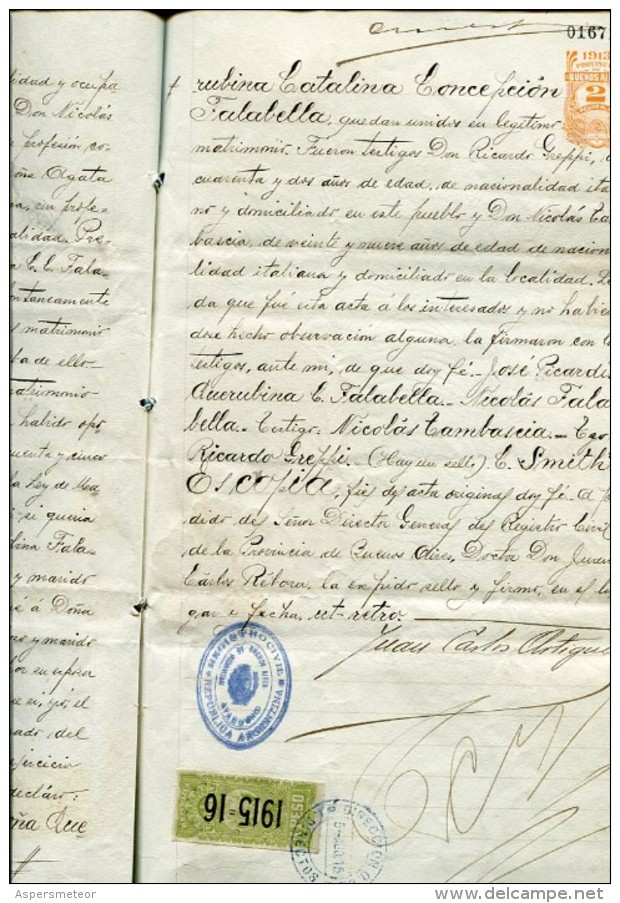 0167
1913
PROVINCIA
BUENOS AI
2
lidad y ocupa
Don Nicolás
profesión co
ña Agata
a, sin profe-
alidad. Pre-
a C. C. Fala-
ontaneamente
matrimonio
ba de ello.-
matrimonio
habido opo
uenta y cinco
la ley de Ma
si queria
bina Fala-
y marido
é á Doña
y marido
or su esposa
ado del
jercicio
declaro:
ña Que
rubina Catalina Concepción
Falabella, quedan unidos en legitimo
matrimonio. Fueron testigos Don Ricardo Greppi, d
cuarenta y dos años de edad, de nacionalidad ita
no y domiciliado en este pueblo y Don Nicolás Ta
bascia, de veinte y nueve años de edad de nacion
lidad italiana y domiciliado en la localidad. Le
da que fué esta acta á los interesados y no habien
dose hecho observación alguna, la firmaron con l
testigos, ante mi, de que doy fé.- José Ricardi
Querubina C. Falabella.- Nicolás Fala
bella.- Testigo: Nicolás Tambascia.- Tgo
Ricardo Greppi.- (Hay un sello) C. Smith
Es copia, fiel del acta original doy fé. A pe
dido del Señor Director General del Registro Civil
de la Provincia de Buenos Aires, Doctor Don Juan
Cárlos Rébora, la expido sello y firmo, en el lu
gar e fecha, ut-retro.
Juan Carlos Artigue
REGISTRO CIVIL
REPÚBLICA ARGENTINA
1915-16
DIRECCION G
Aspersmeteor
www.delcampe.net